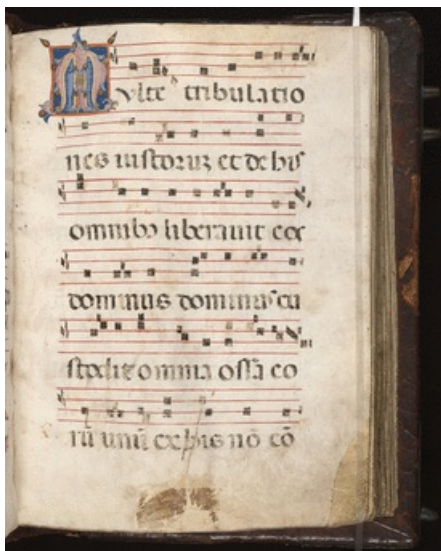 Multe tribulatio
nes iustoruz et de his
omnibꝰ liberauit eos
dominus dominus cu
stodit omnia ossa eo
rū unū ex his nō cō